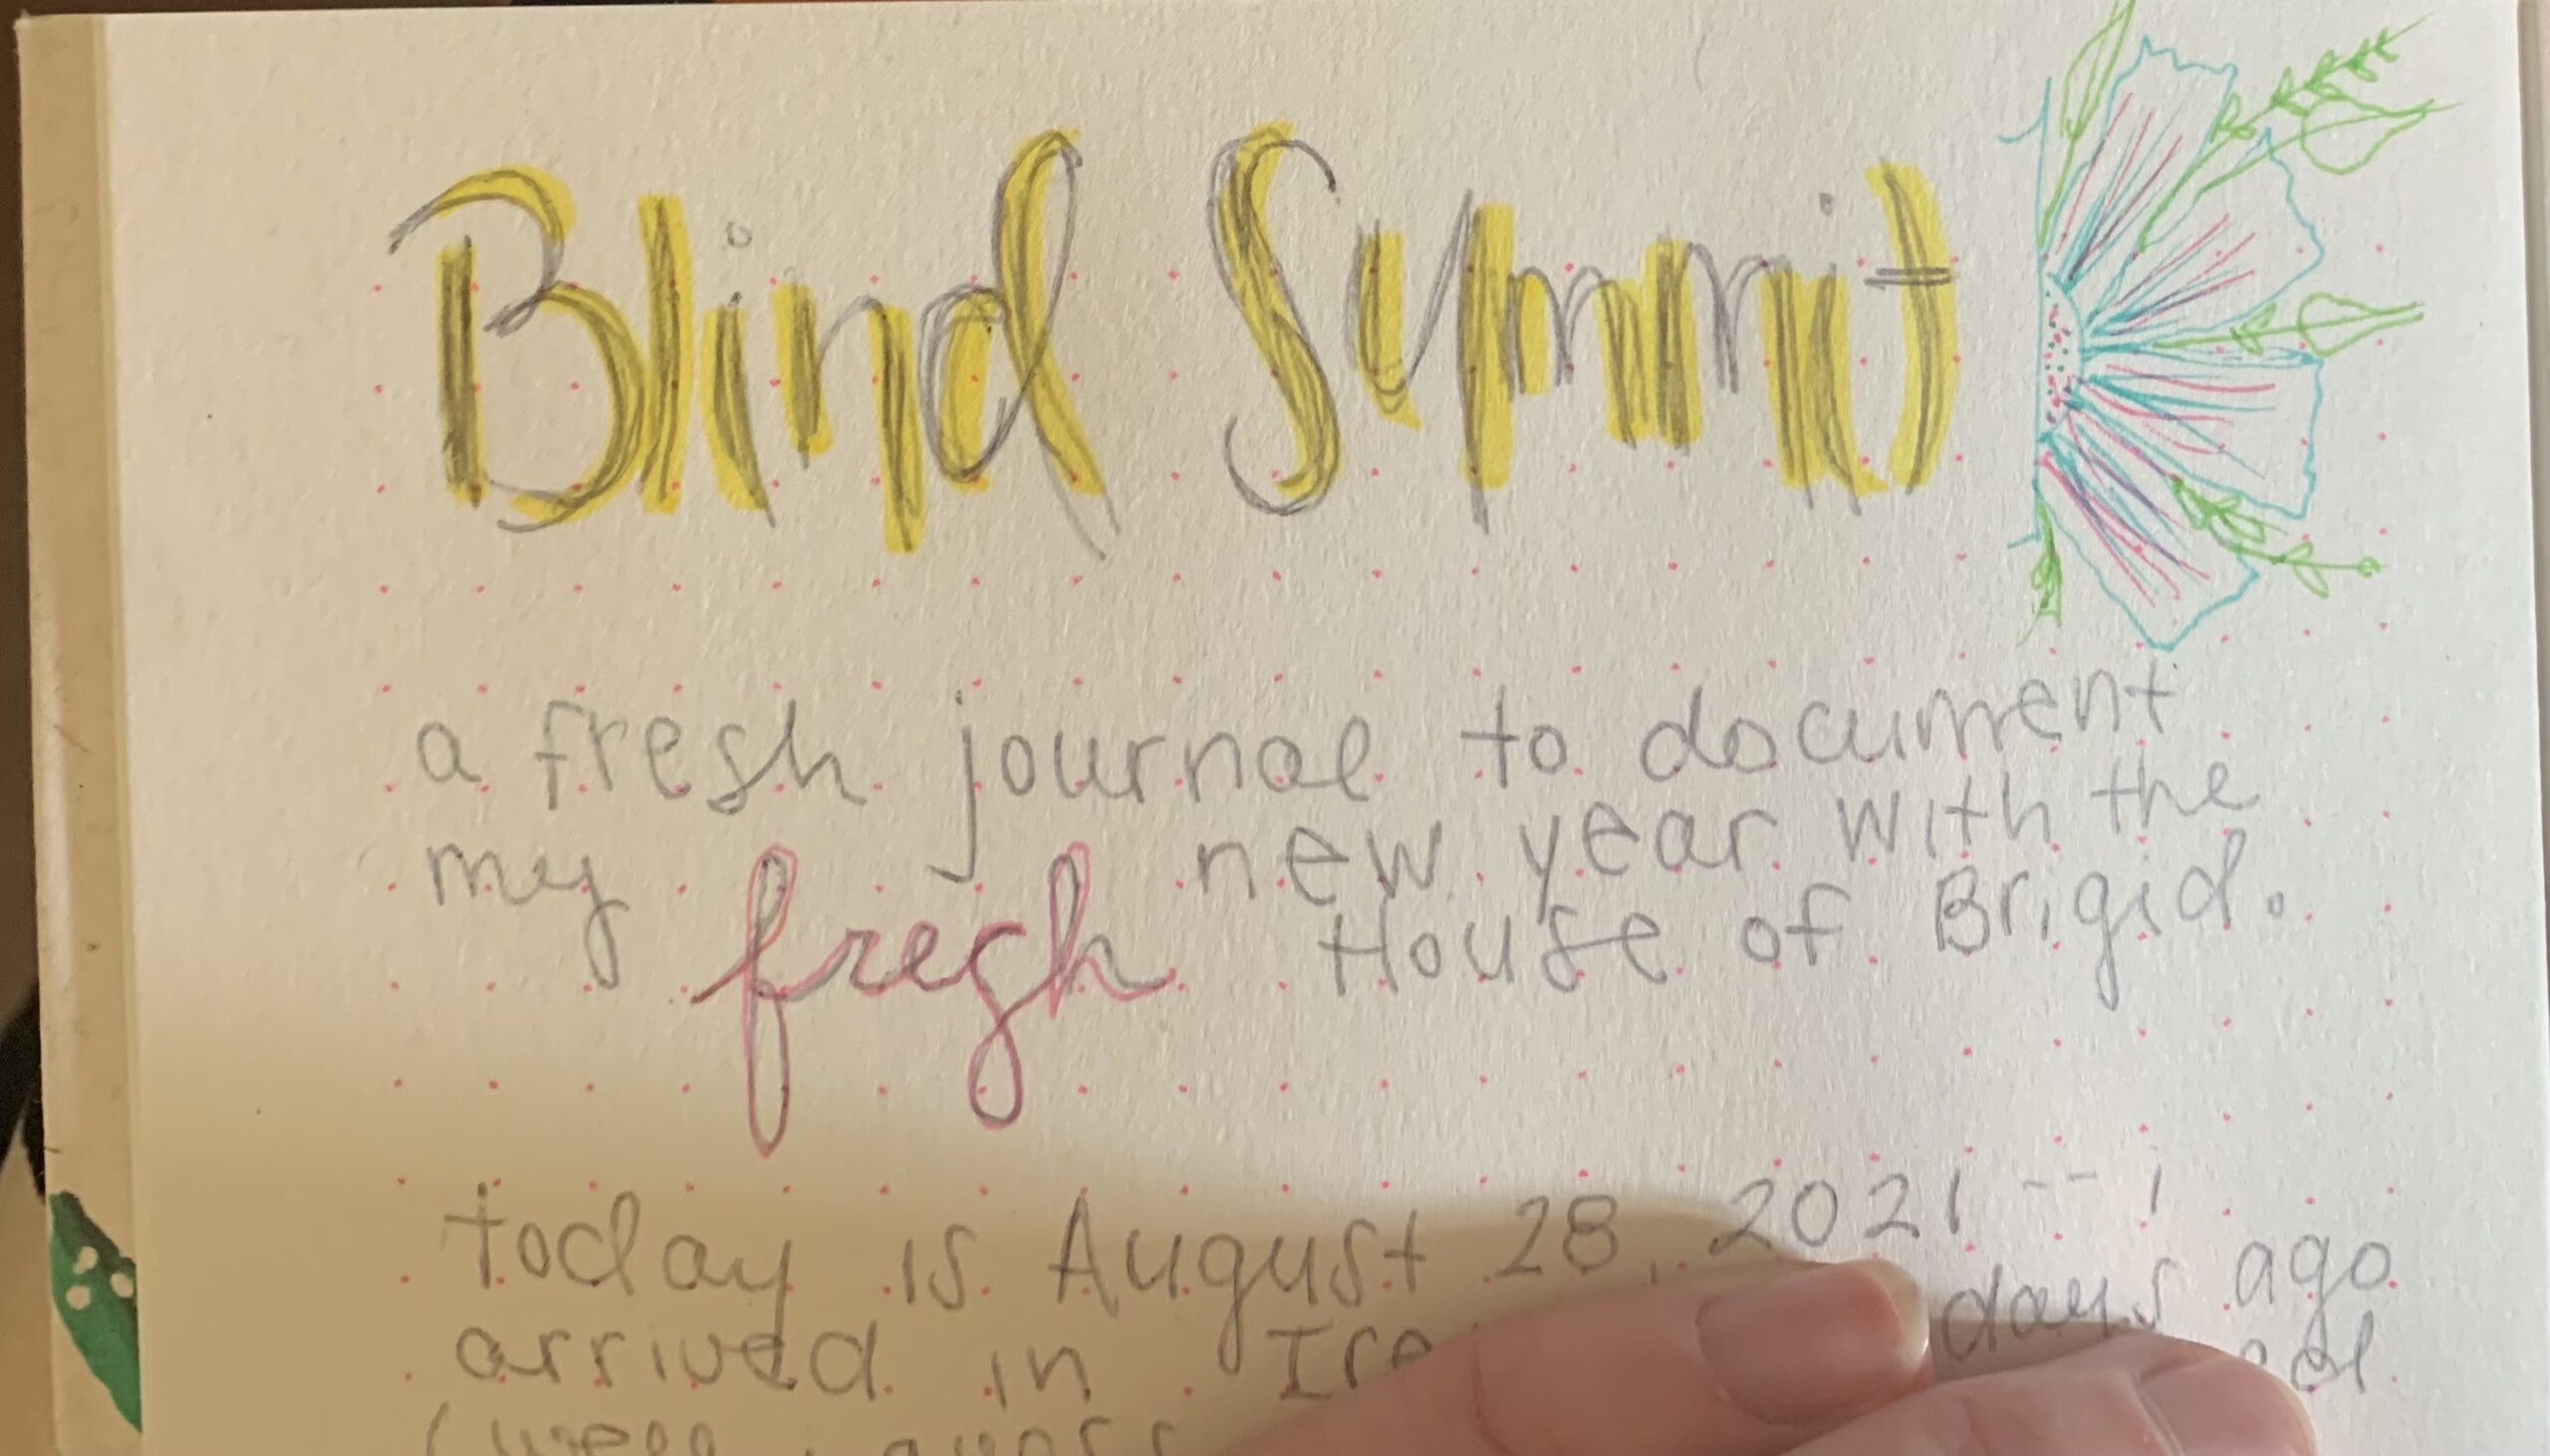 Blind Summit
a fresh journal to document
my fresh new year with the
House of Brigid.
today is August 28, 2021 -- i
arrived in days ago